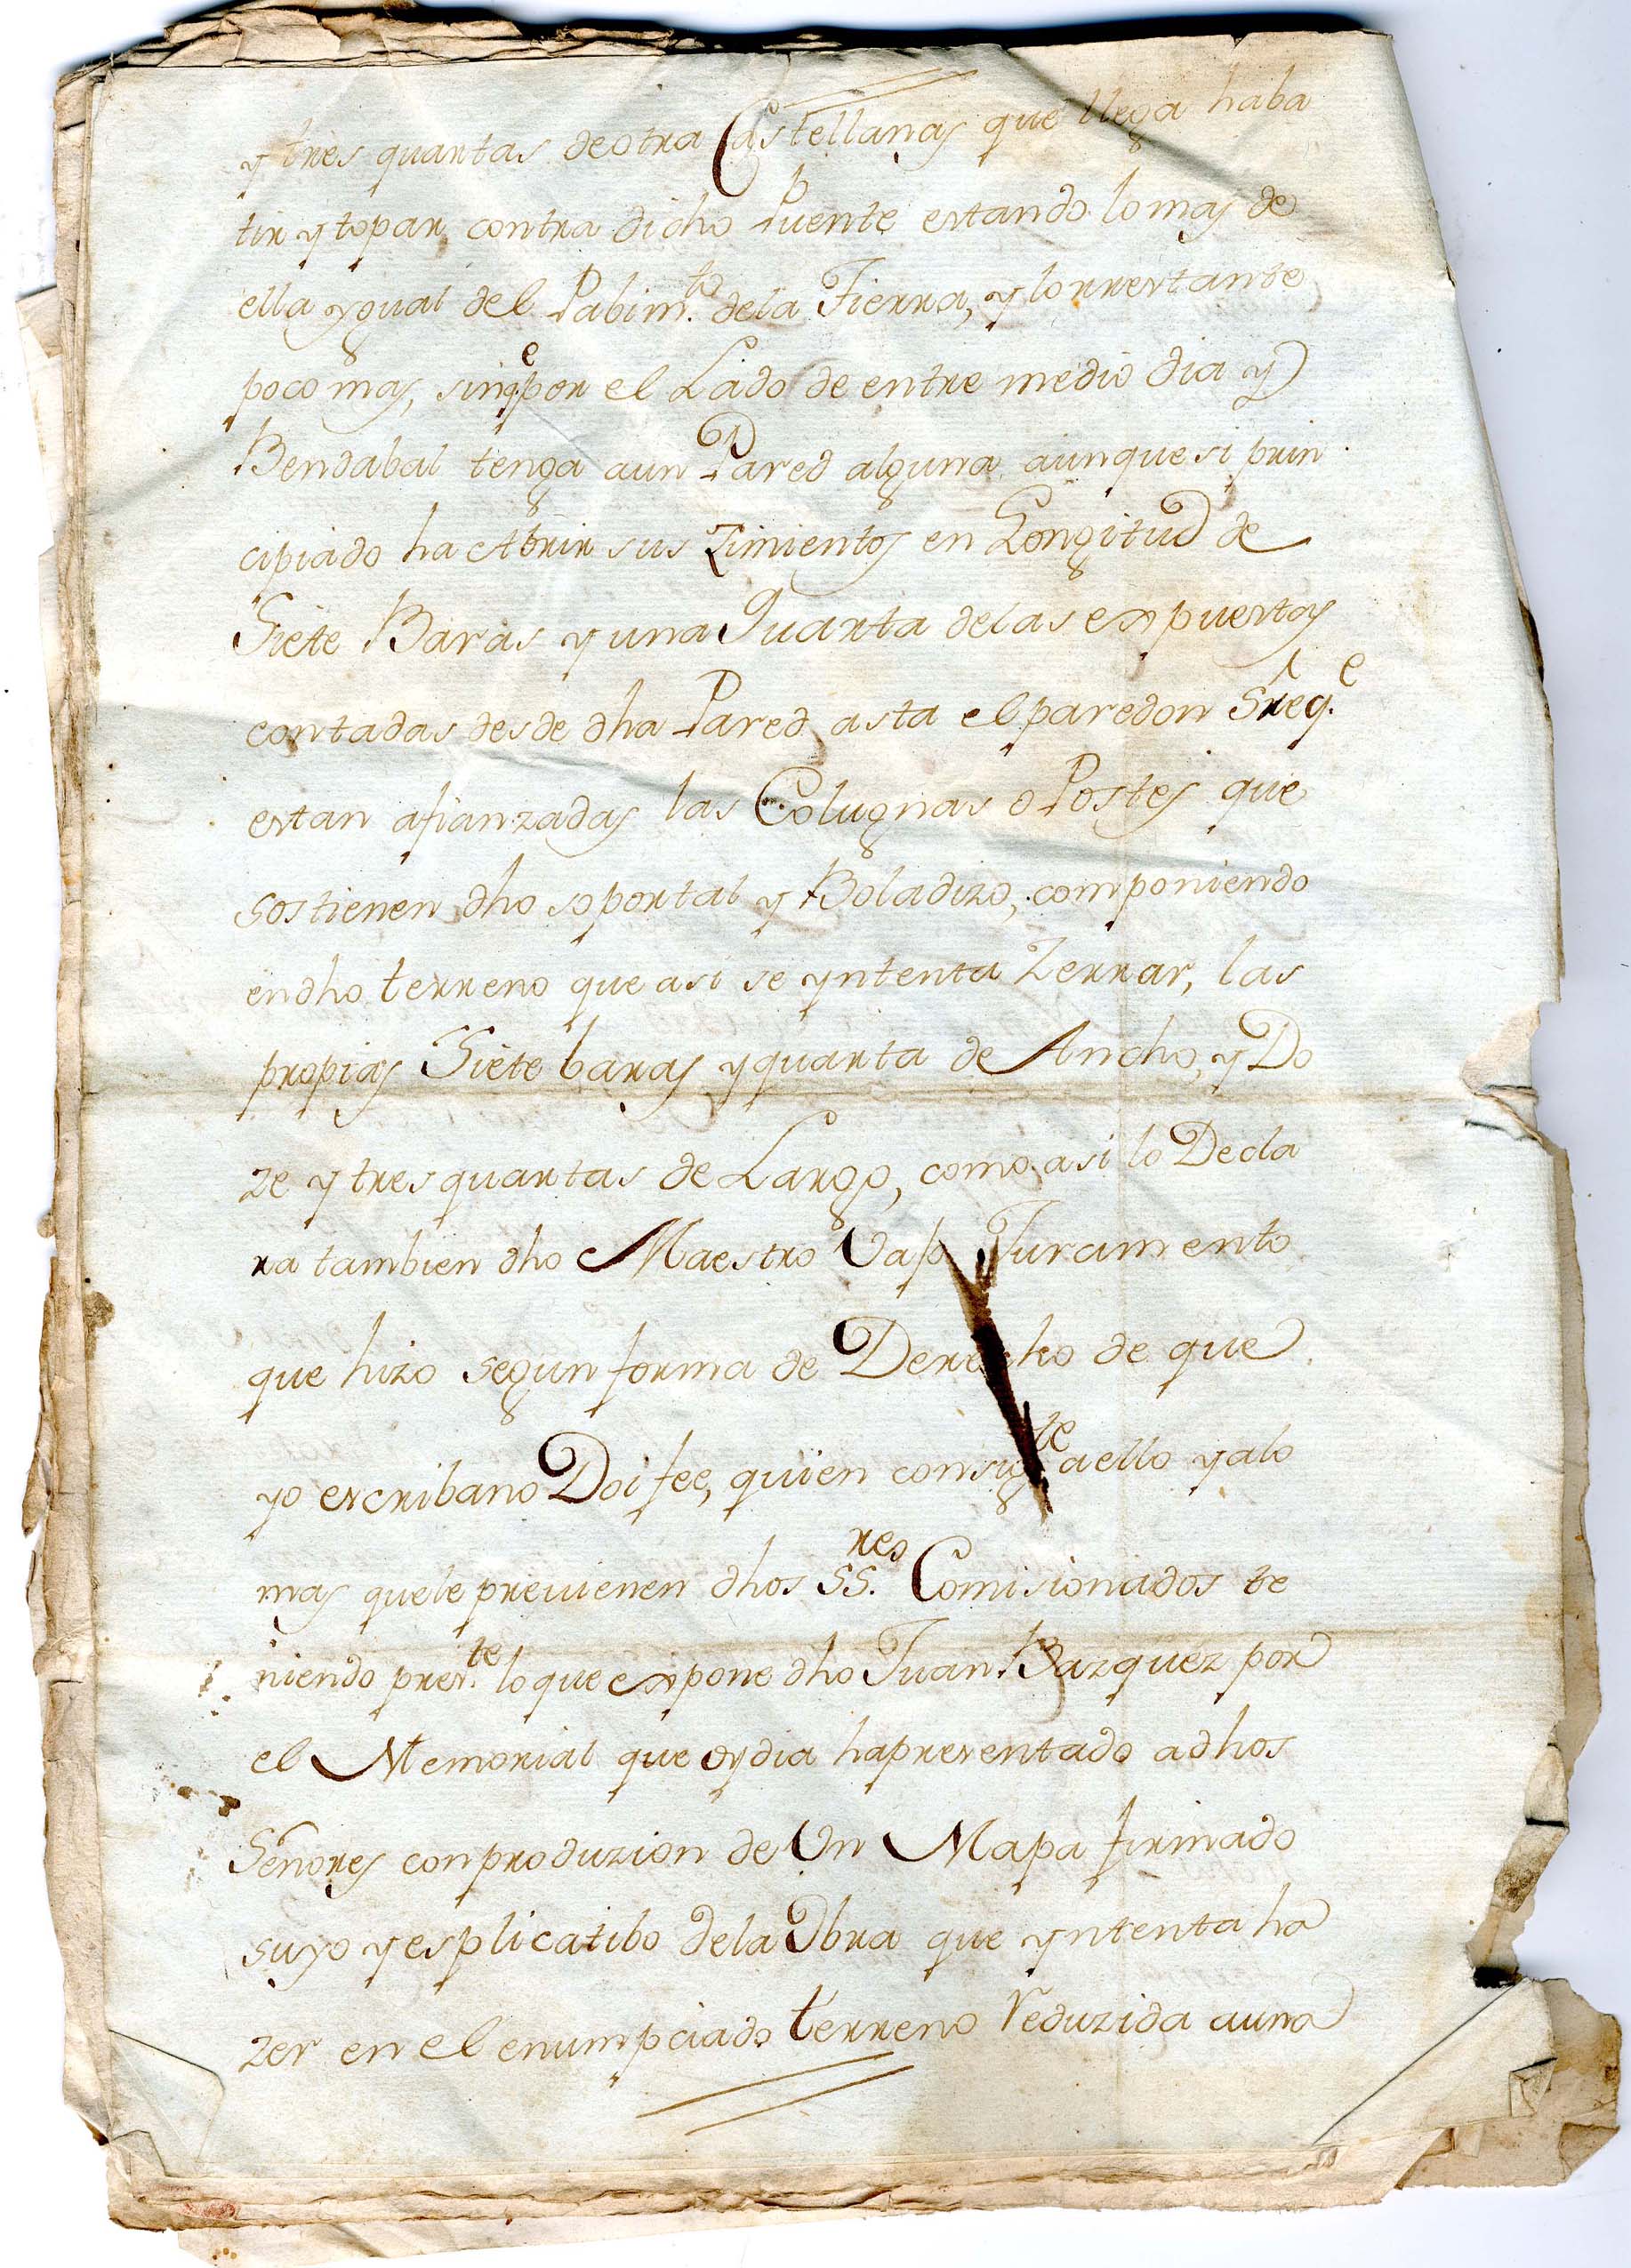 y tres quartas de otra Castellanas que llega haba
tir y topar contra dicho Puente estando lo mas de
ella ygual del Pabim.to dela Tierra, y lo rrestante
poco mas, sinq.e por el Lado de entre medio dia y
Bendabal tenga aun Pared alguna aunque si prin
cipiado ha Abrir sus Zimientos en Longitud de
Siete Baras y una Quarta delas expuestas
contadas desde dha Pared asta el paredon Sreq.e
estan afianzadas las Colugnas o Postes que
sostienen dho soportal y Boladizo, componiendo
en dho terreno que asi se yntenta Zerrar, las
propias Siete baras y quarta de Ancho, y Do
ze y tres quartas de Largo, como asi lo Decla
ra tambien dho Maestro Vajo Juramento
que hizo segun forma de Derecho de que
yo escribano Doi fee, quien consig.te a ello y alo
mas quele previenen dhos SS.res Comisionados te
niendo pres.te lo que expone dho Juan Bazquez por
el Memorial que oy dia ha presentado a dhos
Señores con produzion de Un Mapa firmado
suyo y esplicatibo dela Obra que yntenta ha
zer en el enumpciado terreno reduzida auna